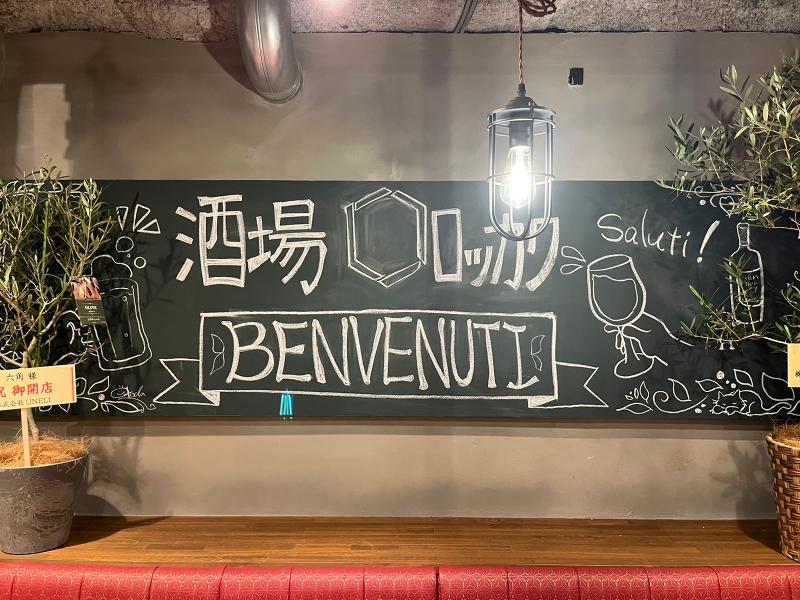 酒場 ロッカク
Saluti!
BENVENUTI
OLIVE
六角 様
祝 御開店
株式会社 UNELI